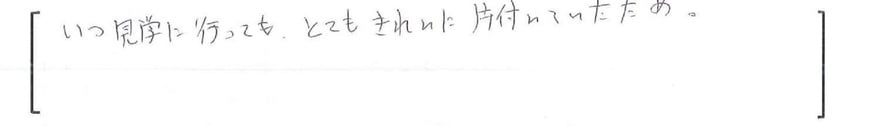 いつ見学に行っても、とてもきれいに片付いていたため。